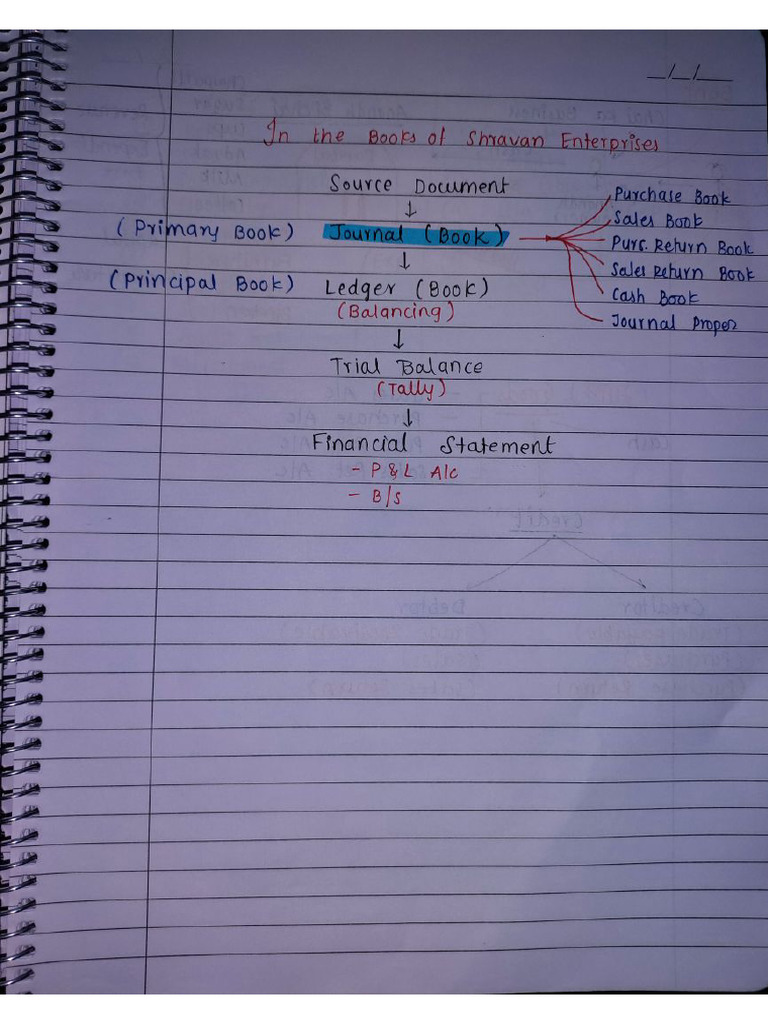 _/_/__
In the Books of Shravan Enterprises
Source Document
↓
(Primary Book) Journal (Book)
Purchase Book
Sales Book
Purs. Return Book
Sales Return Book
Cash Book
Journal Proper
↓
(Principal Book) Ledger (Book)
(Balancing)
↓
Trial Balance
(Tally)
↓
Financial Statement
- P & L A/c
- B/S